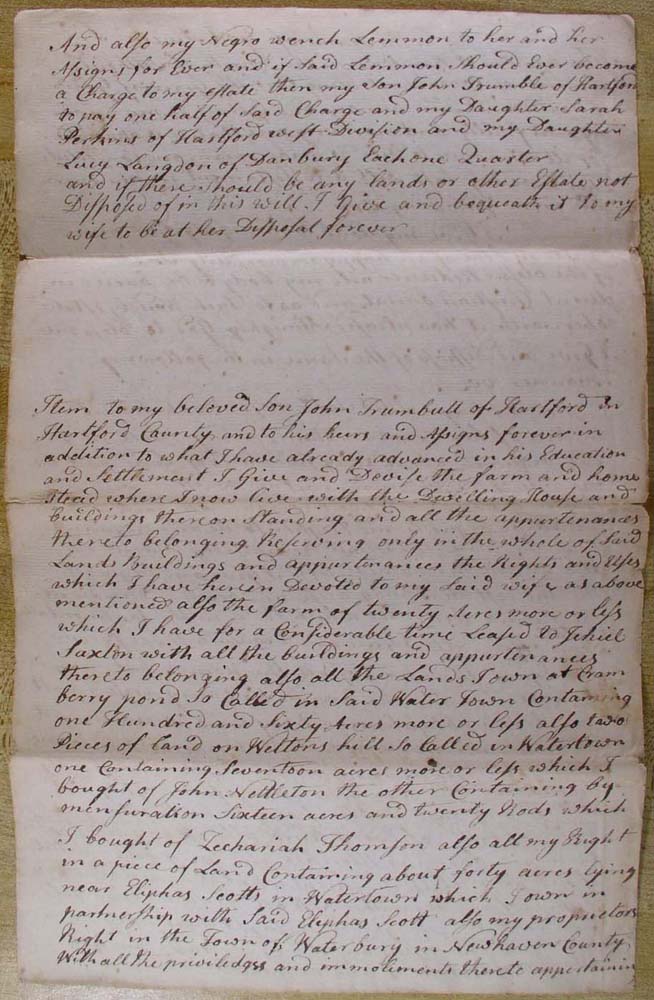 And also my Negro wench Lemmon to her and her
Assigns for Ever and if Said Lemmon Should Ever become
a Charge to my estate then my Son John Trumble of Hartford
to pay one half of Said Charge and my Daughter Sarah
Perkins of Hartford west Division and my Daughter
Lucy Langdon of Danbury Each one Quarter
and if there should be any lands or other Estate not
Disposed of in this will I Give and bequeath it to my
wife to be at her Disposal forever
Item to my beloved Son John Trumbull of Hartford in
Hartford County and to his heirs and Assigns forever in
addition to what I have already advanced in his Education
and Settlement I Give and Devise the farm and home
stead where I now live with the Dwelling House and
buildings thereon Standing and all the appurtenances
thereto belonging Reserving only in the whole of Said
Lands Buildings and appurtenances the Rights and Uses
which I have herein Devoted to my Said wife as above
mentioned also the farm of twenty Acres more or less
which I have for a Considerable time Leased to Jehiel
Saxton with all the buildings and appurtenances
thereto belonging also all the Lands I own at Cram
berry pond So Called in Said Water Town Containing
one Hundred and Sixty Acres more or less also two
Pieces of land on Weltons hill So Called in Watertown
one Containing Seventeen acres more or less which I
bought of John Nettleton the other Containing by
mensuration Sixteen acres and twenty Rods which
I bought of Zechariah Thomson also all my Right
in a piece of Land Containing about forty acres lying
near Eliphas Scotts in Watertown which I own in
partnership with Said Eliphas Scott also my proprietors
Right in the Town of Waterbury in Newhaven County
With all the priviledges and immoluments thereto appertainin